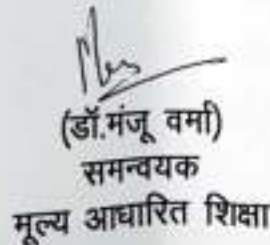 (डॉ.मंजू वर्मा)
समन्वयक
मूल्य आधारित शिक्षा